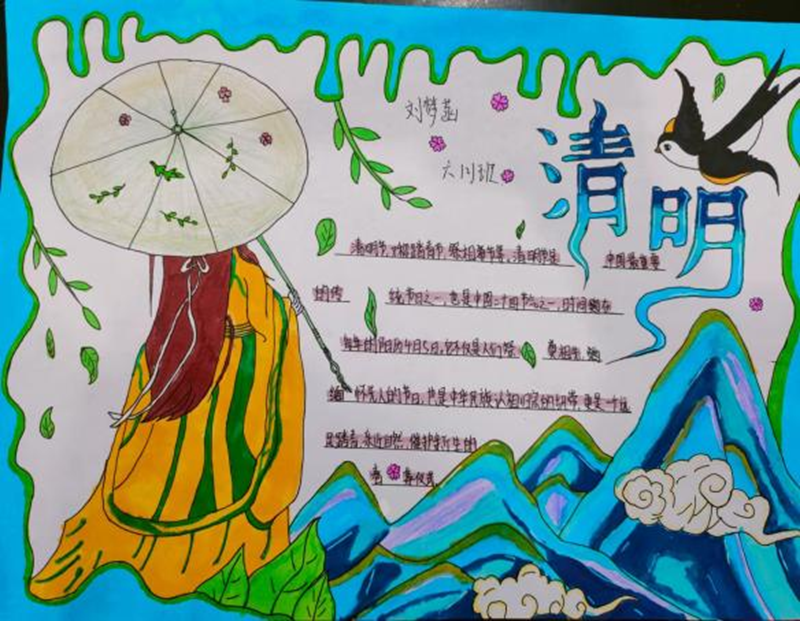 刘梦菡
六(1)班
清明
清明节,又称踏青节、祭祖节等,清明节是 中国最重要
的传 统节日之一,也是中国二十四节气之一,时间约在
每年的阳历4月5日,它不仅是人们祭 奠祖先、
缅 怀先人的节日,也是中华民族认祖归宗的纽带,更是一个远
足踏青、亲近自然、催护新生的
春 季仪式。